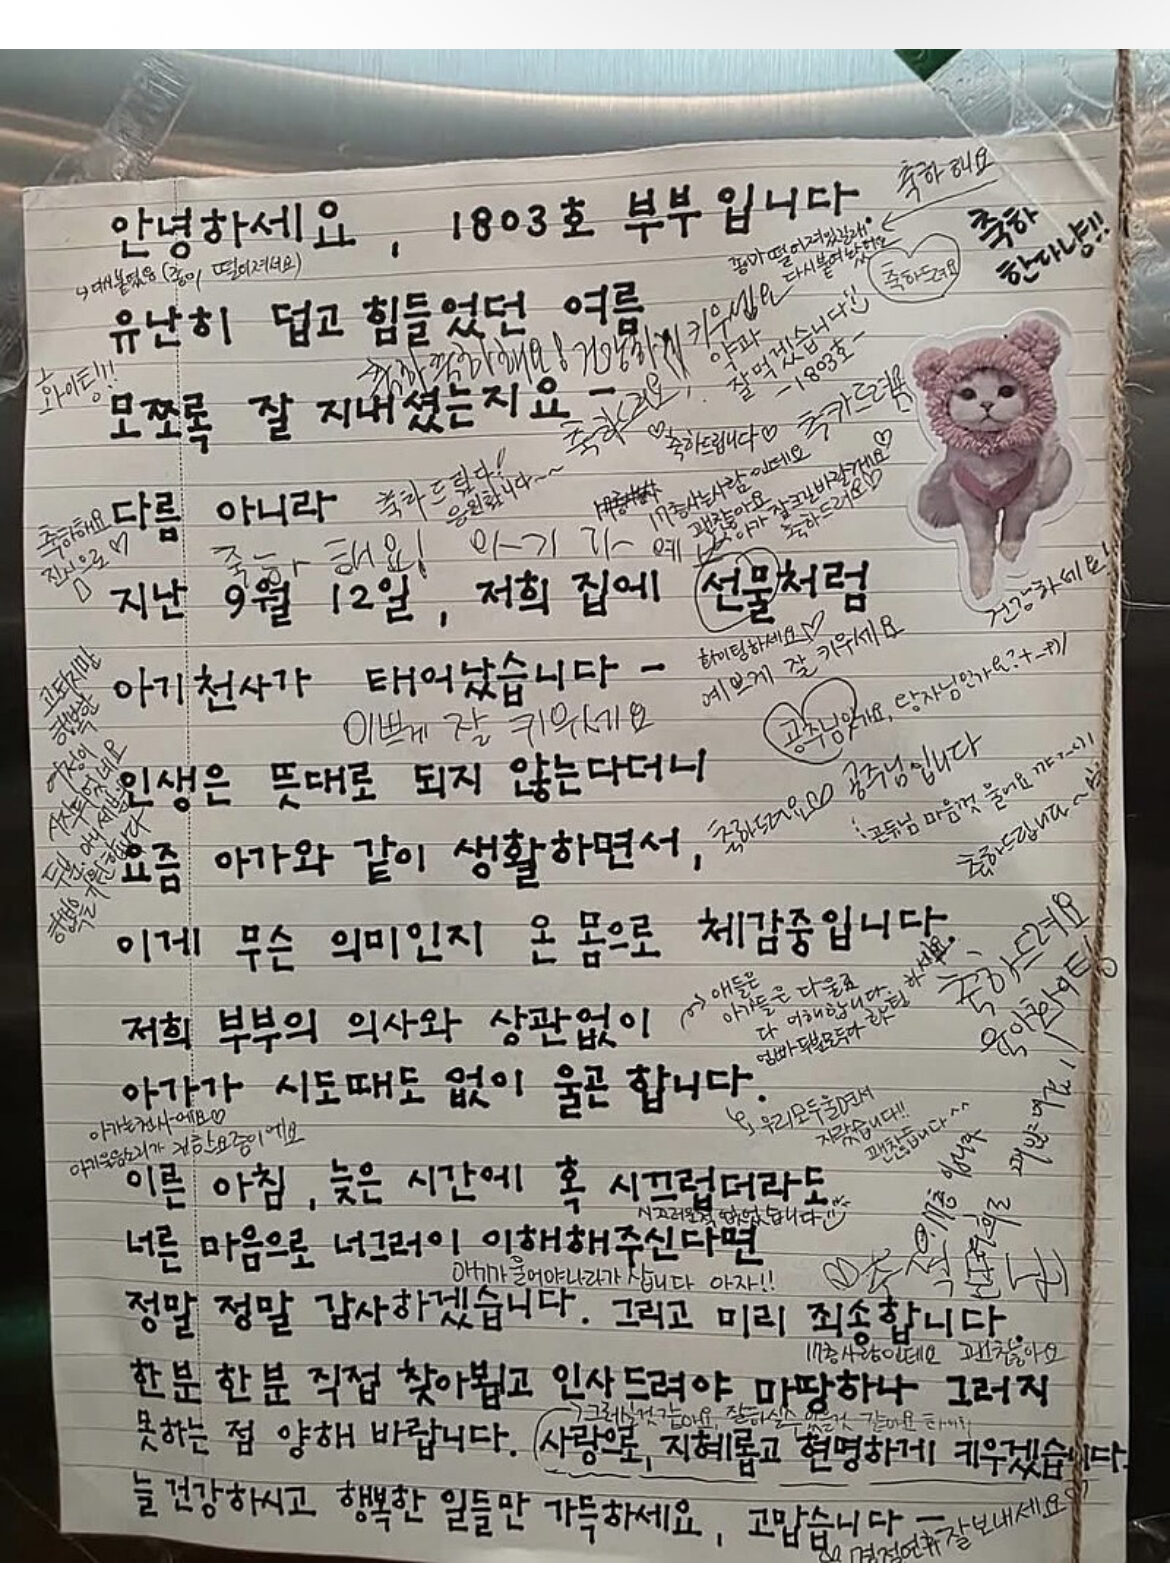 축하해요
안녕하세요, 1803호 부부입니다.
축하
한다냥!!
종이가 떨어져있길래!
다시 붙여놨어요
축하드려요
↳ 대신 붙였음 (종이 떨어져서요)
유난히 덥고 힘들었던 여름
화이팅!!!
축하축하해요! 건강하게 키우세요
약과
잘 먹겠습니다
-1803호-
모쪼록 잘 지내셨는지요 -
축하드려요
♡축하드립니다♡
축하드려용
다름 아니라
축하드립니다!
응원합니다~~
17층사는사람인데요
괜찮아요
아가 잘 크길 바랄게요♡
축하드려요♡
축하해요
진심으로♡
축하해요! 아기가 예뻐
지난 9월 12일, 저희 집에 선물처럼
건강하세요!
화이팅하세요♡
예쁘게 잘 키우세요
아기천사가 태어났습니다 -
이쁘게 잘 키우세요
공주님인가요, 왕자님인가요?
고되지만
행복한
여정이
시작되었네요
두분, 아니 세분의
행복을 기원합니다
인생은 뜻대로 되지 않는다더니
공주님입니다
축하드려요♡♡
공듀님 마음껏 울어요
축하드립니다~
요즘 아가와 같이 생활하면서,
이게 무슨 의미인지 온 몸으로 체감중입니다.
축하드려요
육아 화이팅
애들은
아가들은 다 울죠
다 이해합니다.
엄빠 두분 모두 다 화이팅 하세요
저희 부부의 의사와 상관없이
아가가 시도때도 없이 울곤 합니다.
아가는 천사에요♡
아기 울음소리가 건강한 증이에요
↳ 우리모두 울면서
자랐습니다!!
괜찮습니다^^
이른 아침, 늦은 시간에 혹 시끄럽더라도
시끄러운적 없었습니다
너른 마음으로 너그러이 이해해주신다면
아기가 울어야 나라가 삽니다 아자!!
정말 정말 감사하겠습니다. 그리고 미리 죄송합니다.
17층사람인데요 괜찮아요
한분 한분 직접 찾아뵙고 인사드려야 마땅하나 그러지
그러실것 같아요, 잘하실수 있을것 같아요
못하는 점 양해 바랍니다. 사랑으로, 지혜롭고 현명하게 키우겠습니다.
늘 건강하시고 행복한 일들만 가득하세요, 고맙습니다 -
명절연휴 잘 보내세요